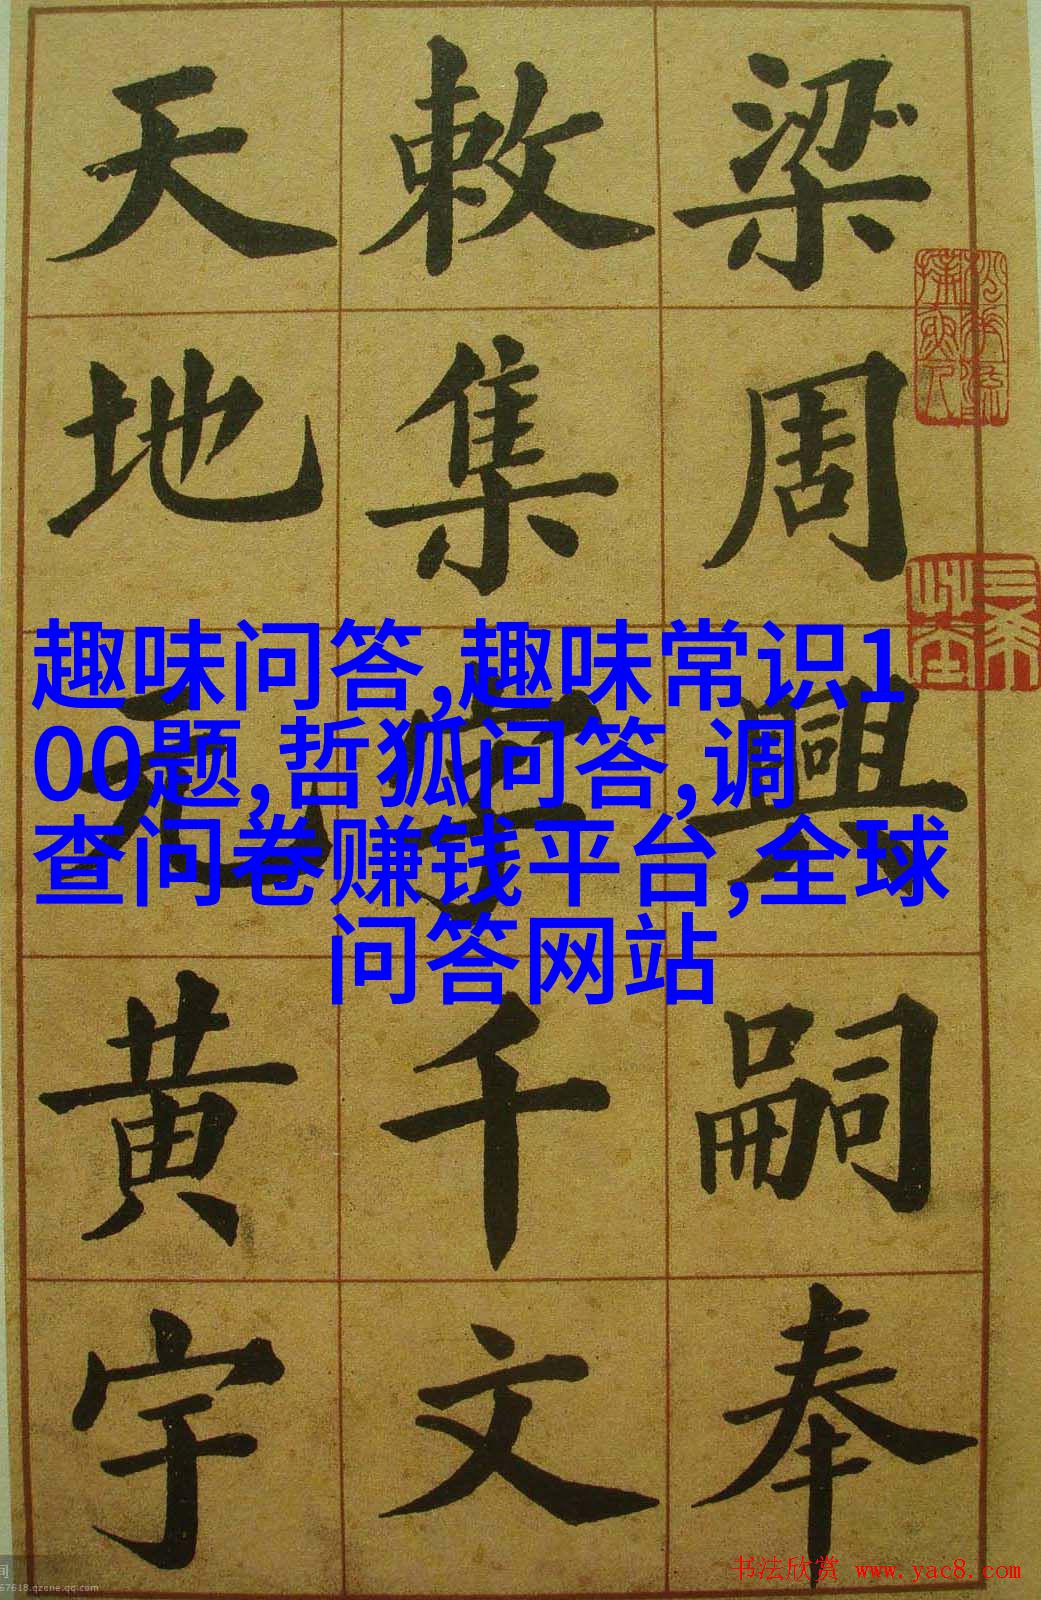 梁周興嗣奉
敕集字千文
天地元黄宇
趣味问答,趣味常识1
00题,哲狐问答,调
查问卷赚钱平台,全球
问答网站
书法欣赏 www.yac8.com
间
67618.qzone.qq.com